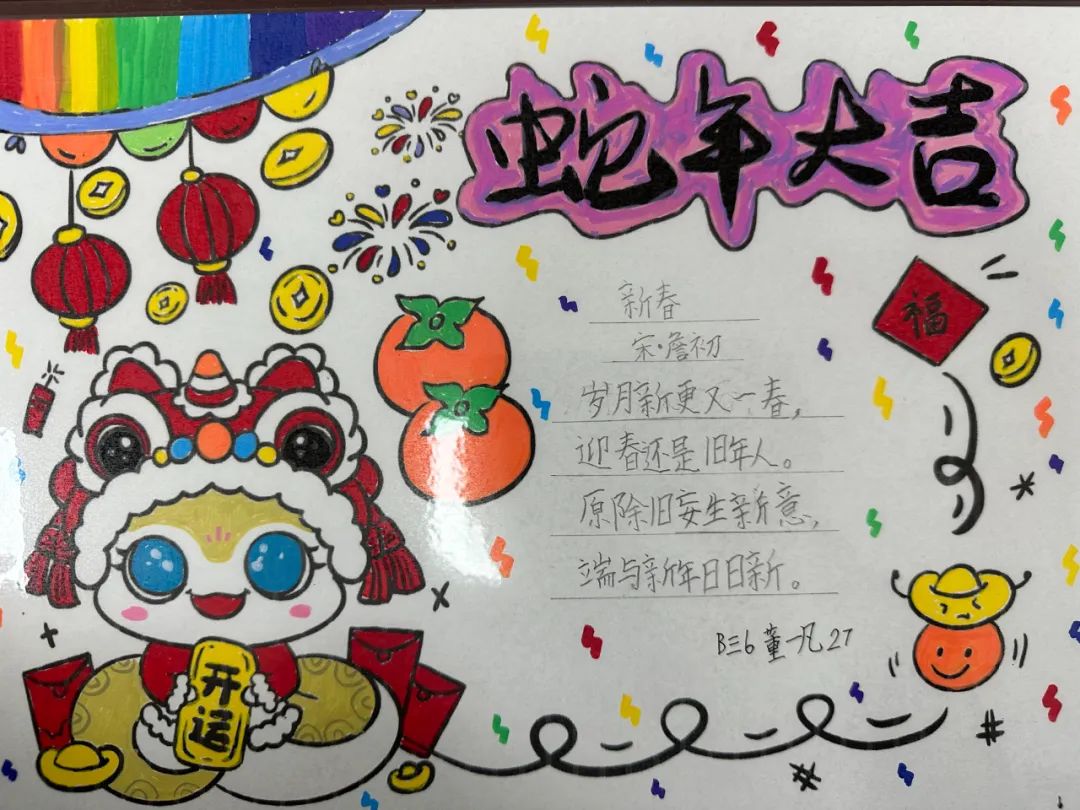 蛇年大吉
福
新春
宋·詹初
岁月新更又一春，
迎春还是旧年人。
原除旧妄生新意，
端与新年日日新。
B三6 董一凡 27
开运